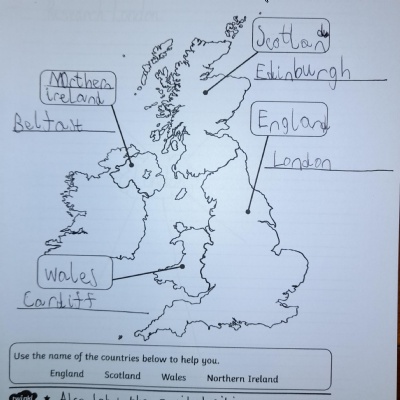 Scotland
Edinburgh
Northern
ireland
Belfast
England
London
Wales
Cardiff
Use the name of the countries below to help you.
England Scotland Wales Northern Ireland
twinkl